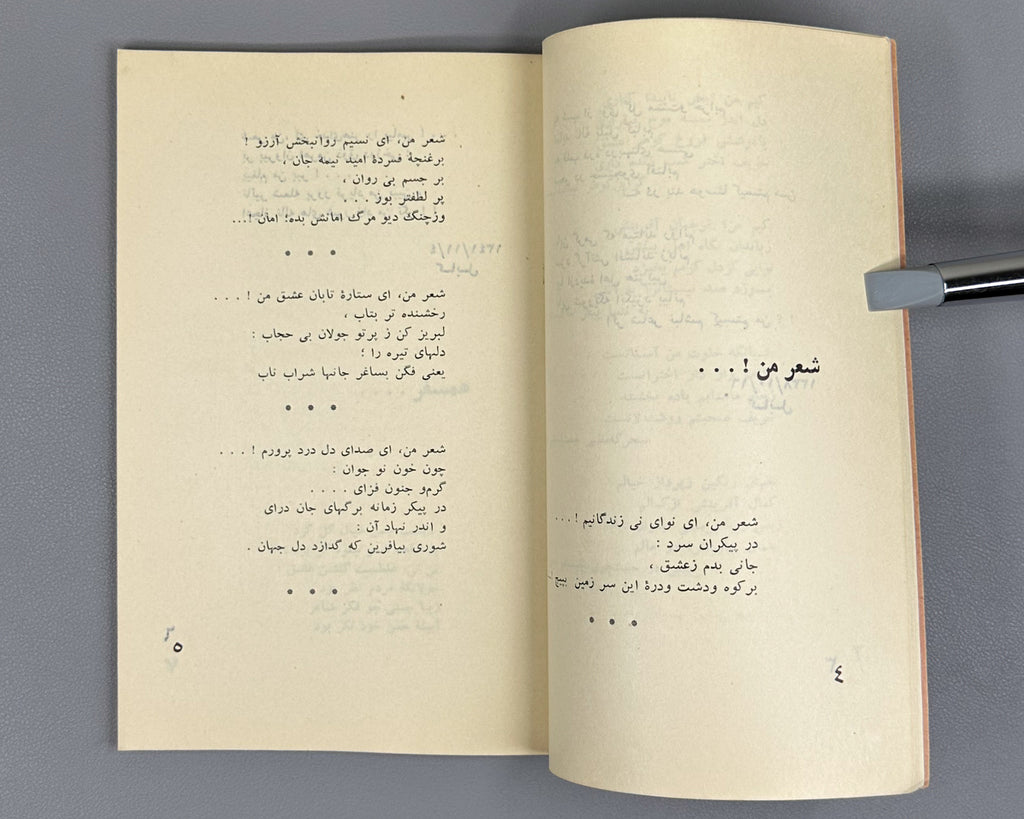 شعر من ! . . .
شعر من، ای نوای نی زندگانیم ! . . .
در پیکران سرد :
جانی بدم زعشق ،
برکوه ودشت ودرهٔ این سر زمین بپیچ
• • •
٤
شعر من، ای نسیم روانبخش آرزو !
برغنچهٔ فسردهٔ امید نیمه جان ،
بر جسم بی روان ،
پر لطفتر بوز . . . .
وزچنگ دیو مرگ امانش بده؛ امان !...
• • •
شعر من، ای ستارهٔ تابان عشق من ! . . .
رخشنده تر بتاب ،
لبریز کن ز پرتو جولان بی حجاب :
دلهای تیره را ؛
یعنی فگن بساغر جانها شراب ناب
• • •
شعر من، ای صدای دل درد پرورم ! . . .
چون خون نو جوان :
گرم‌و جنون فزای . . . .
در پیکر زمانه برگهای جان درای
و اندر نهاد آن :
شوری بیافرین که گدازد دل جهان .
• • •
٥